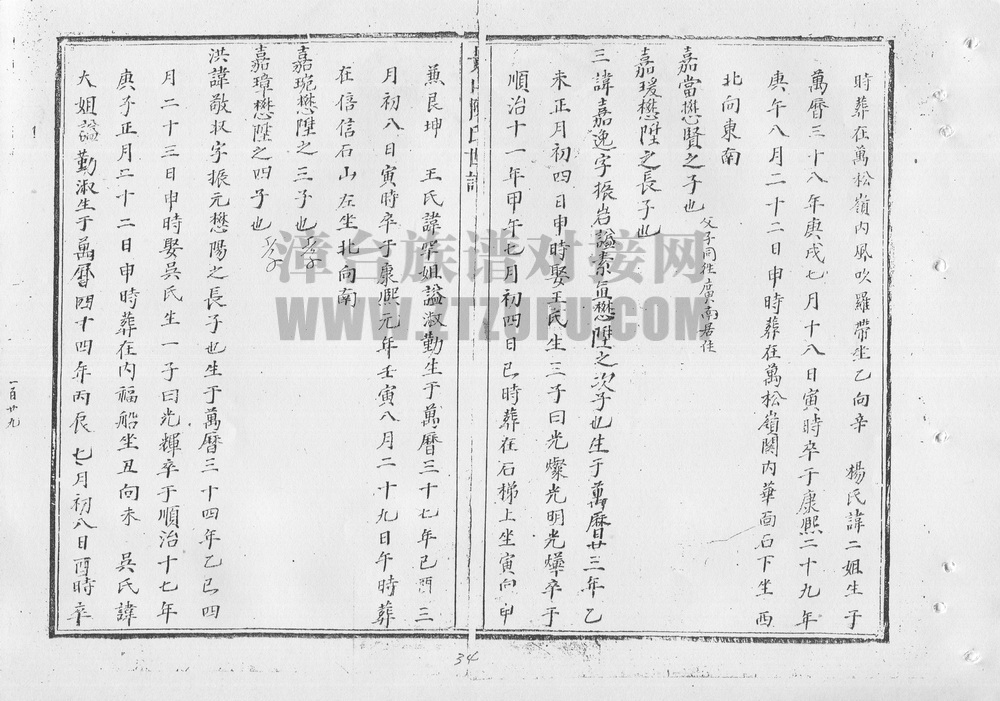 時葬在萬松嶺内風吹羅帶坐乙向辛 楊氏諱二姐生于
萬曆三十八年庚戌七月十八日寅時卒于康熙二十九年
庚午八月二十二日申時葬在萬松嶺関内華面石下坐西
北向東南
嘉當懋賢之子也 父子同往廣南居住
嘉瑗懋陞之長子也
三諱嘉逸字振岩謚素真懋陞之次子也生于萬曆廿三年乙
未正月初四日申時娶王氏生三子曰光燦光明光燁卒于
順治十一年甲午七月初四日巳時葬在石梯上坐寅向申
兼艮坤 王氏諱 姐謚淑勤生于萬曆三十七年己酉三
月初八日寅時卒于康熙元年壬寅八月二十九日午時葬
在信信石山左坐北向南
嘉琬懋陞之三子也
嘉璋懋陞之四子也
洪諱敬叔字振元懋陽之長子也生于萬曆三十四年乙巳四
月二十三日申時娶吳氏生一子曰光輝卒于順治十七年
庚子正月二十二日申時葬在内福船坐丑向未 吳氏諱
大姐謚勤淑生于萬曆四十四年丙辰七月初八日酉時卒
一百廿九
34
漳台族谱对接网
WWW.ZTZUPU.COM